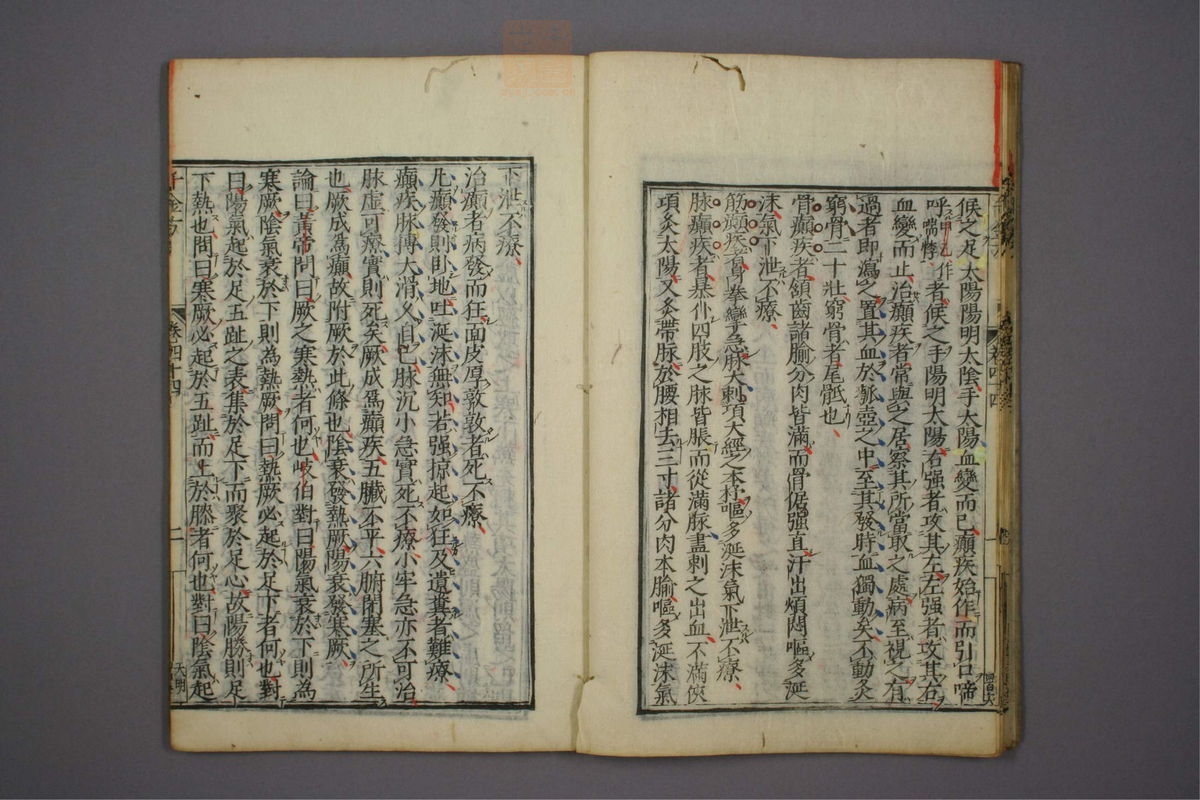 候之足太陽陽明太陰手太陽血變而已癲疾始作而引口啼
呼喘悸者候之手陽明太陽右强者攻其左左强者攻其右
血變而止治癲疾者常與之居察其所當取之處病至視之有
過者即瀉之置其血於瓠壺之中至其發時血獨動矣不動灸
窮骨二十壯窮骨者尾骶也
骨癲疾者頷齒諸腧分肉皆滿而骨倨强直汗出煩悶嘔多涎
沫氣下泄不療
筋癲疾者身拳攣急脉大刺項大經之本杼嘔多涎沫氣下泄不療
脉癲疾者暴仆四肢之脉皆脹而從滿脉盡刺之出血不滿俠
項灸太陽又灸帶脉於腰相去三寸諸分肉本腧嘔多涎沫氣
卷四十四
二
下泄不療
治癲者病發而狂面皮厚敦敦者死不療
凡癲發則卧地吐涎沫無知若强掠起如狂及遺糞者難療
癲疾脉搏大滑久自已脉沉小急實死不療小牢急亦不可治
脉虛可療實則死矣厥成爲癲疾五臟不平六腑閉塞之所生
也厥成爲癲故附厥於此條也陰衰發熱厥陽衰發寒厥
論曰黃帝問曰厥之寒熱者何也岐伯對曰陽氣衰於下則爲
寒厥陰氣衰於下則爲熱厥問曰熱厥必起於足下者何也對
曰陽氣起於足五趾之表集於足下而聚於足心故陽勝則足
下熱也問曰寒厥必起於五趾而上於膝者何也對曰陰氣起
卷四十四
二